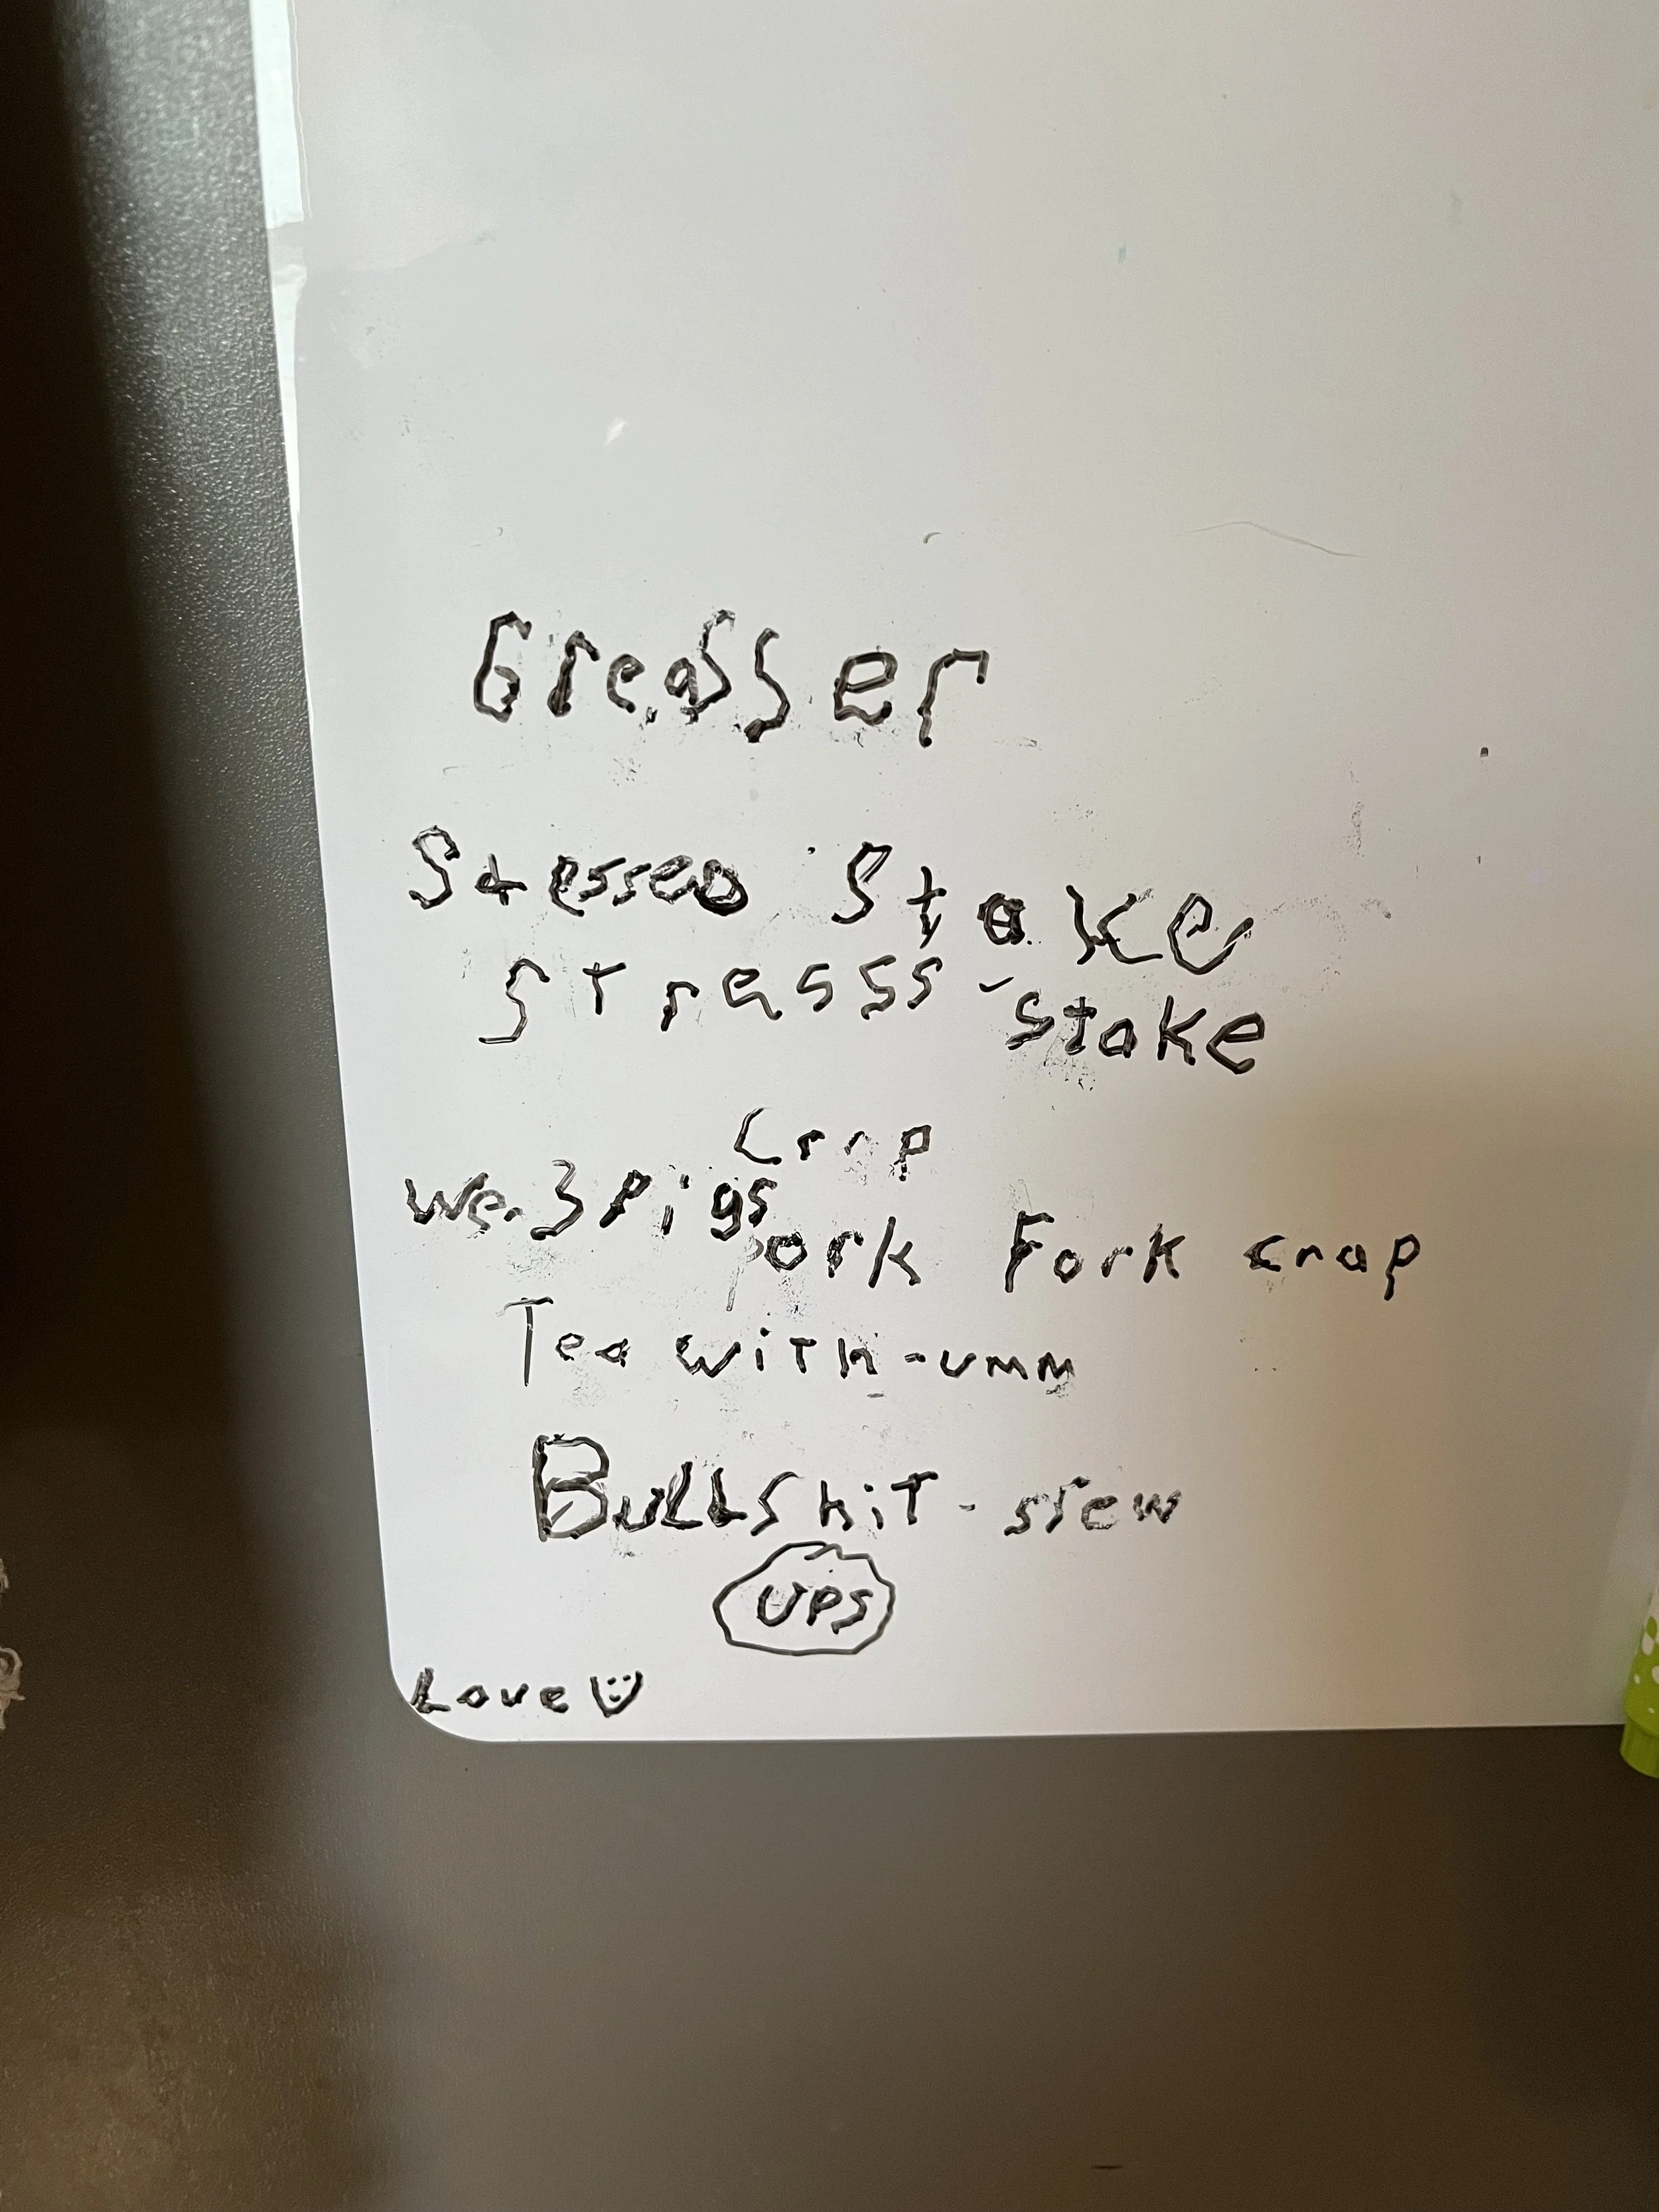 Greasser
Stessed Stake
Stresss-Stake
Crap
We.3 Pigs
Pork Fork crap
Tea with-umm
BullShit-stew
UPS
Love